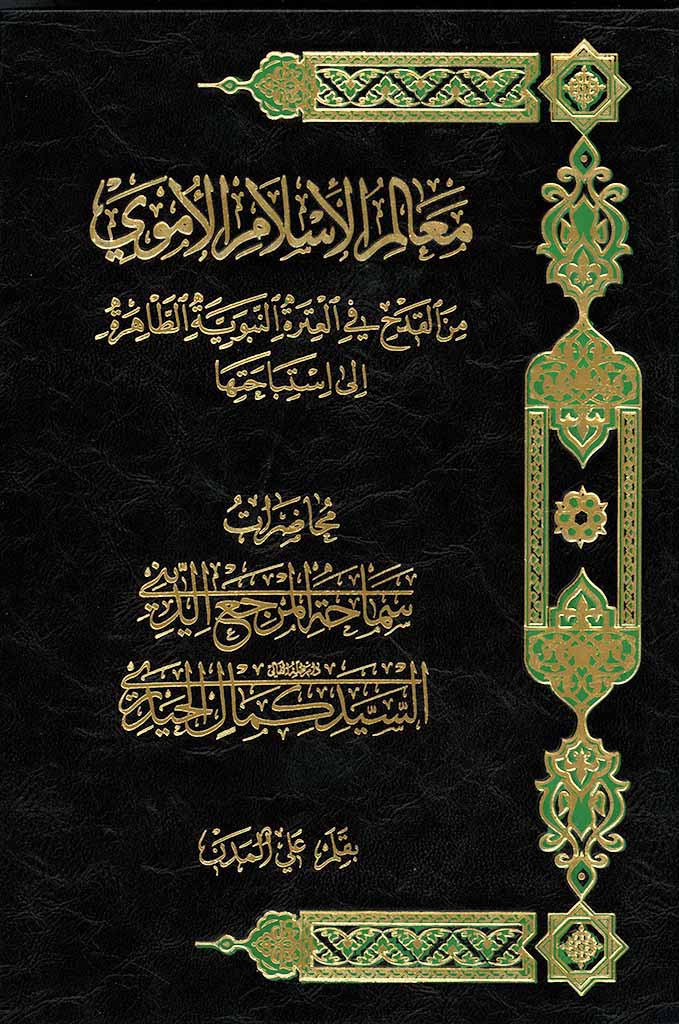 مَعَالِمُ الْأِسْلَامِ الْأُمَوِيِّ
مِنَ الْقَدْحِ فِي الْعِتْرَةِ النَّبَوِيَّةِ الطَّاهِرَةِ
إِلَى اسْتِبَاحَتِهَا
مُحَاضَرَات
سَمَاحَة الْمَرْجِع الدِّينِي
السَّيِّد كَمَال الْحَيْدَرِي
بِقَلَم عَلِي الْمَدَن